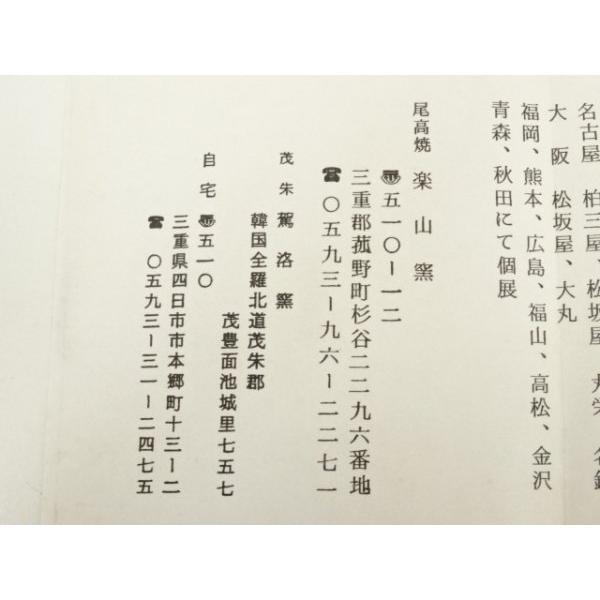 名古屋 柏三屋、松坂屋、丸栄、名鉄
大阪 松坂屋、大丸
福岡、熊本、広島、福山、高松、金沢
青森、秋田にて個展
尾高焼 楽山窯
〠五一〇ー一二
三重郡菰野町杉谷二二九六番地
☎〇五九三ー九六ー二二七一
茂朱 駕洛窯
韓国全羅北道茂朱郡
茂豊面池城里七五七
自宅 〠五一〇
三重県四日市市本郷町十三ー二
☎〇五九三ー三一ー二四七五